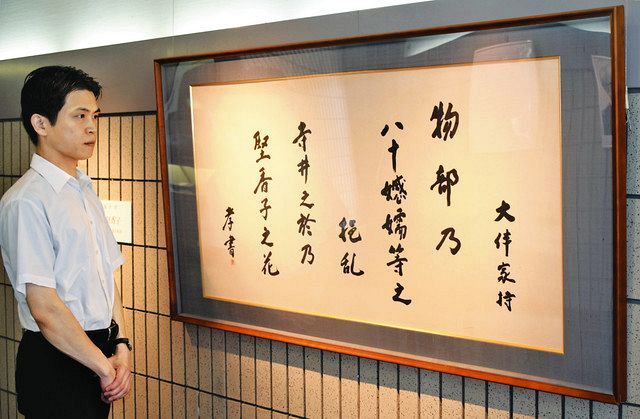 大伴家持
物部乃
八十嬬等之
挹乱
寺井之於乃
堅香子之花
孝書